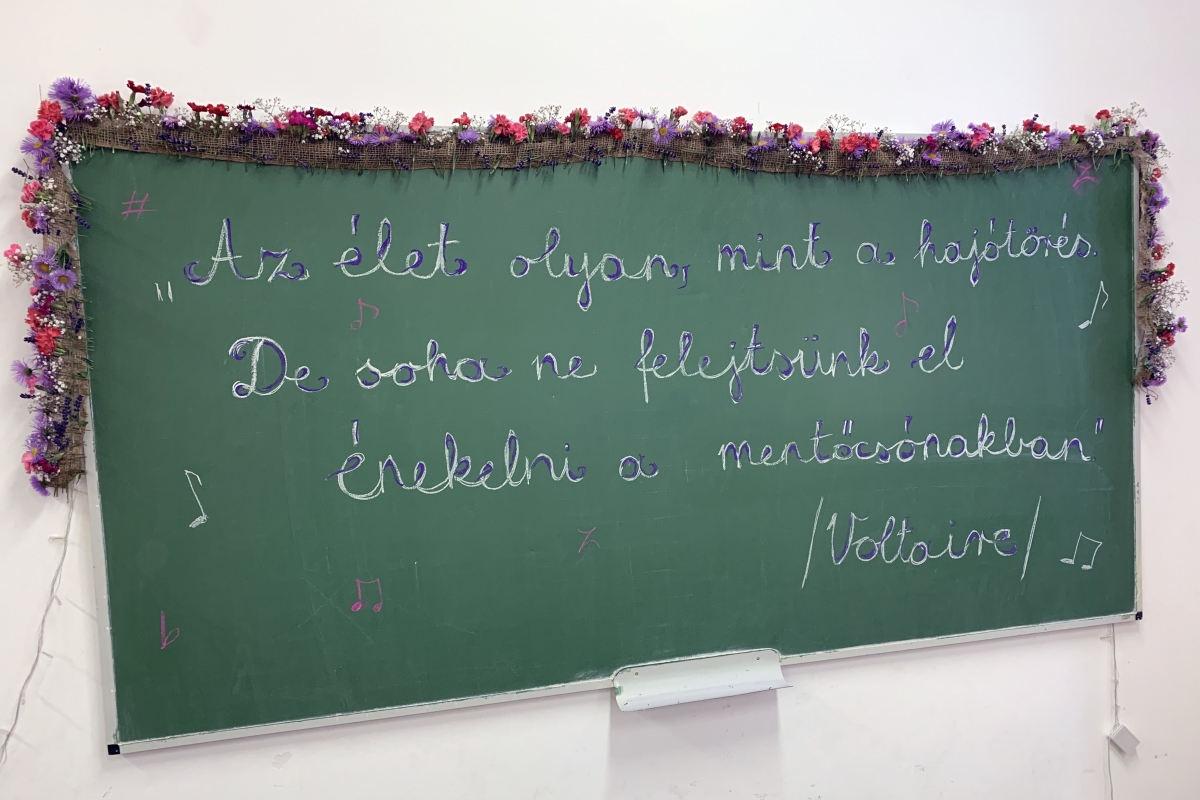 „Az élet olyan, mint a hajótörés.
De soha ne felejtsünk el
énekelni a mentőcsónakban"
/Voltaire/